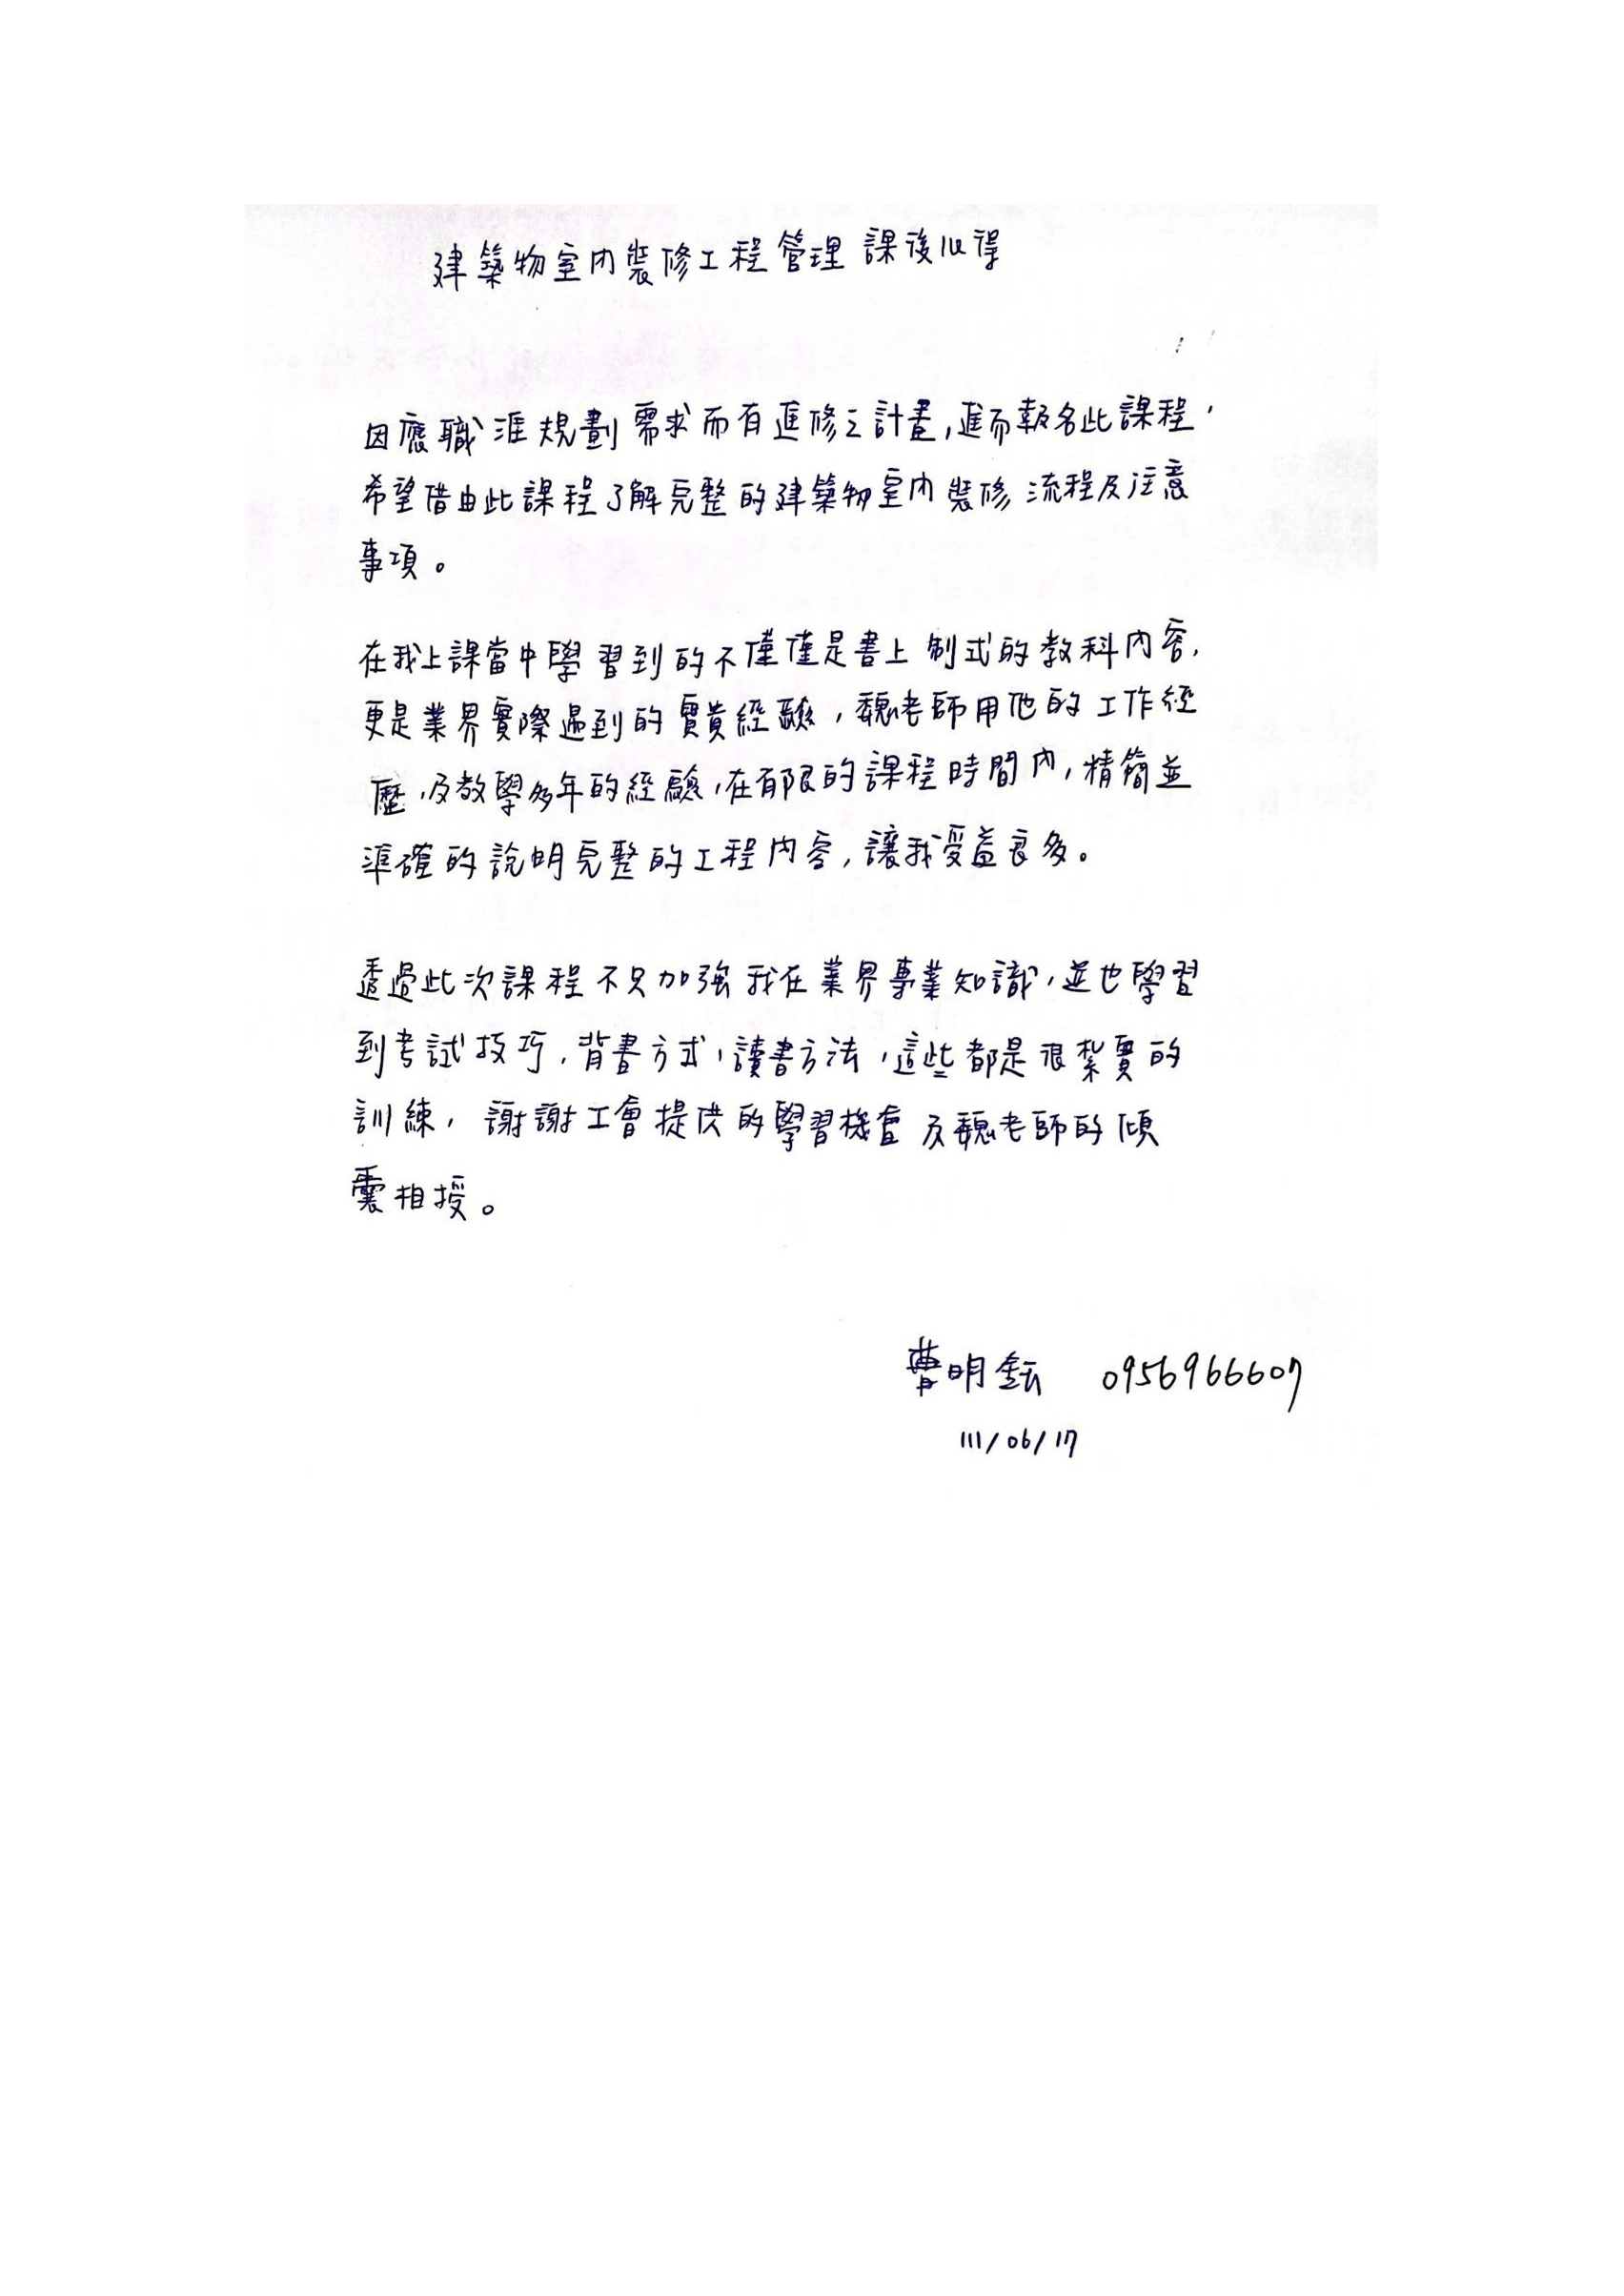 建築物室內裝修工程管理 課後心得
因應職涯規劃需求而有進修之計畫,進而報名此課程,
希望借由此課程了解完整的建築物室內裝修流程及注意
事項。
在我上課當中學習到的不僅僅是書上制式的教科內容,
更是業界實際遇到的寶貴經驗,魏老師用他的工作經
歷,及教學多年的經驗,在有限的課程時間內,精簡並
準確的說明完整的工程內容,讓我受益良多。
透過此次課程不只加強我在業界專業知識,並也學習
到考試技巧,背書方式,讀書方法,這些都是很紮實的
訓練,謝謝工會提供的學習機會及魏老師的傾
囊相授。
曹明鋐 0956966607
111/06/17